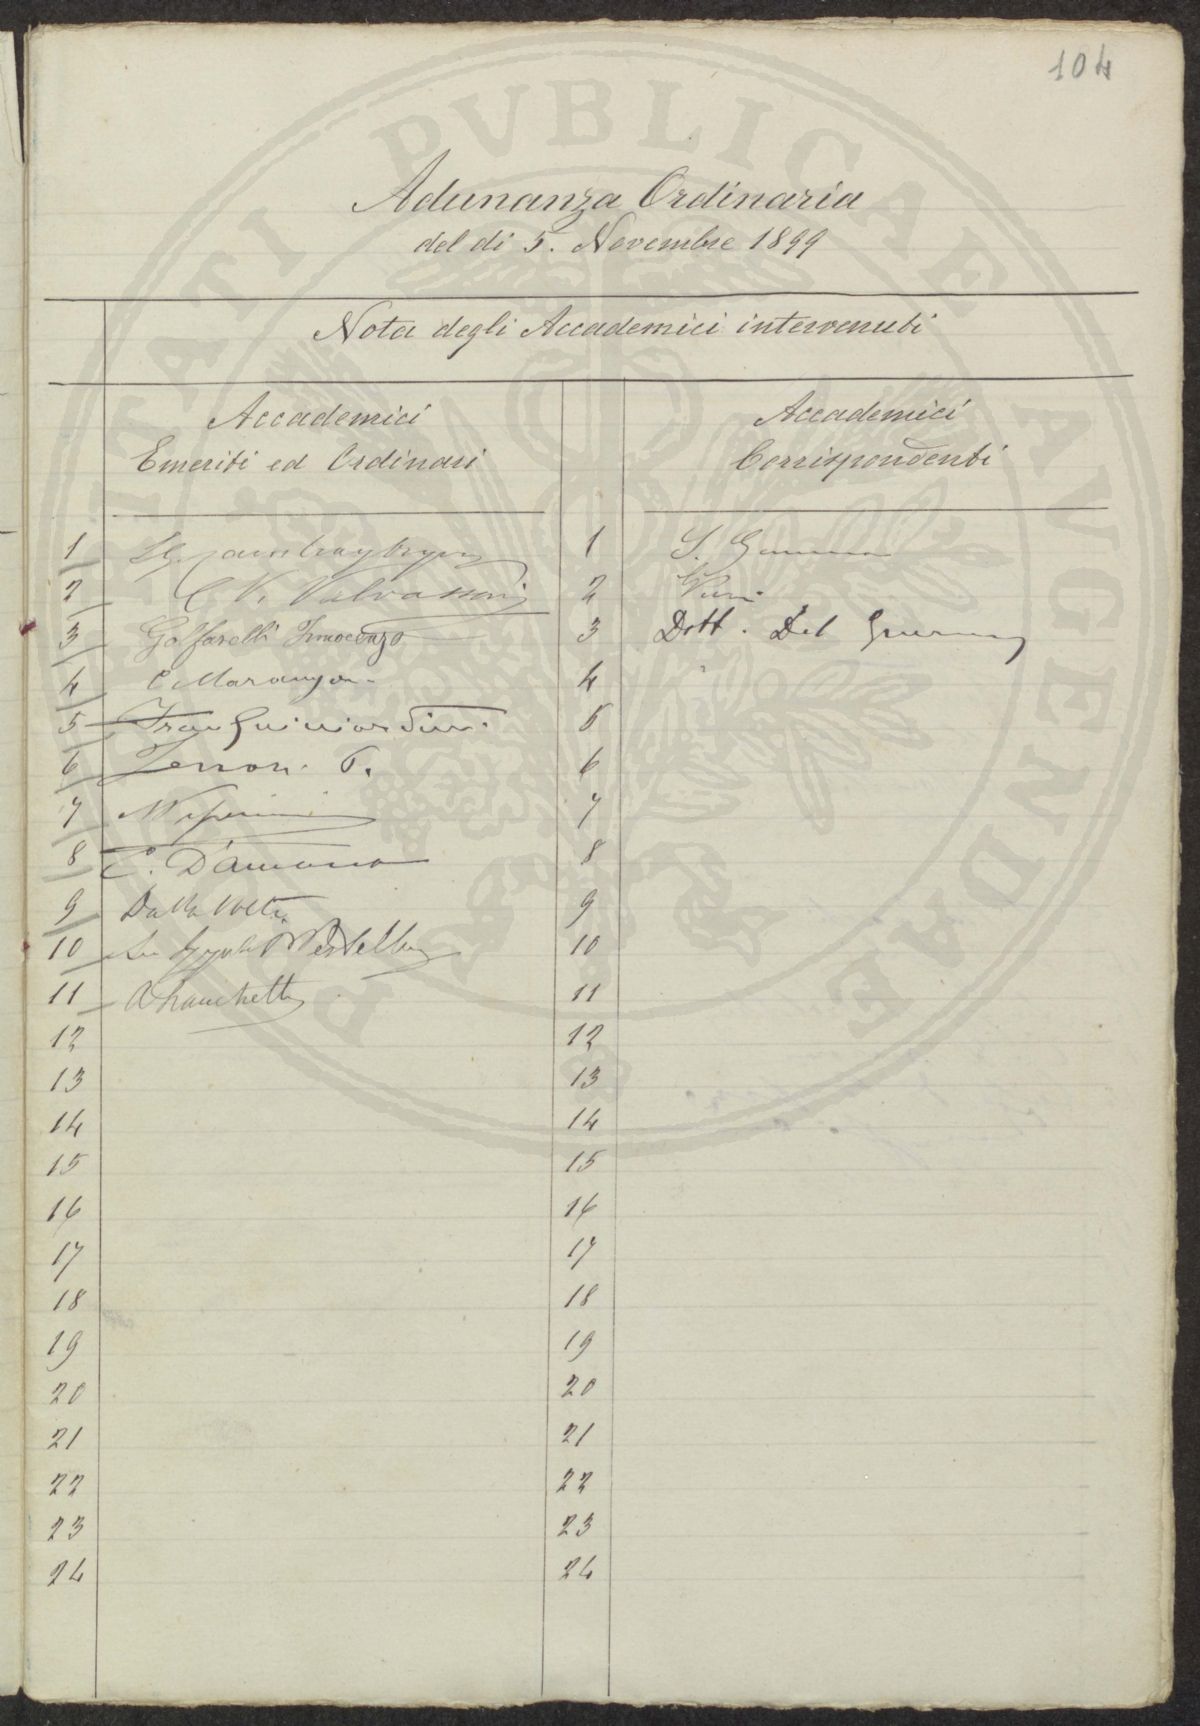 104
PROSPERITATI PVBLICAE AVGENDAE
Adunanza Ordinaria
del dì 5. Novembre 1899
Nota degli Accademici intervenuti
Accademici
Emeriti ed Ordinari
Accademici
Corrispondenti
1
2 C V. Valvassori
3 Golfarelli Innocenzo
4 C Marangoni
5
6
7
8 C. D'Ancona
9 Dalla Volta
10
11
12
13
14
15
16
17
18
19
20
21
22
23
24
1
2
3 Dott. Del
4
5
6
7
8
9
10
11
12
13
14
15
16
17
18
19
20
21
22
23
24